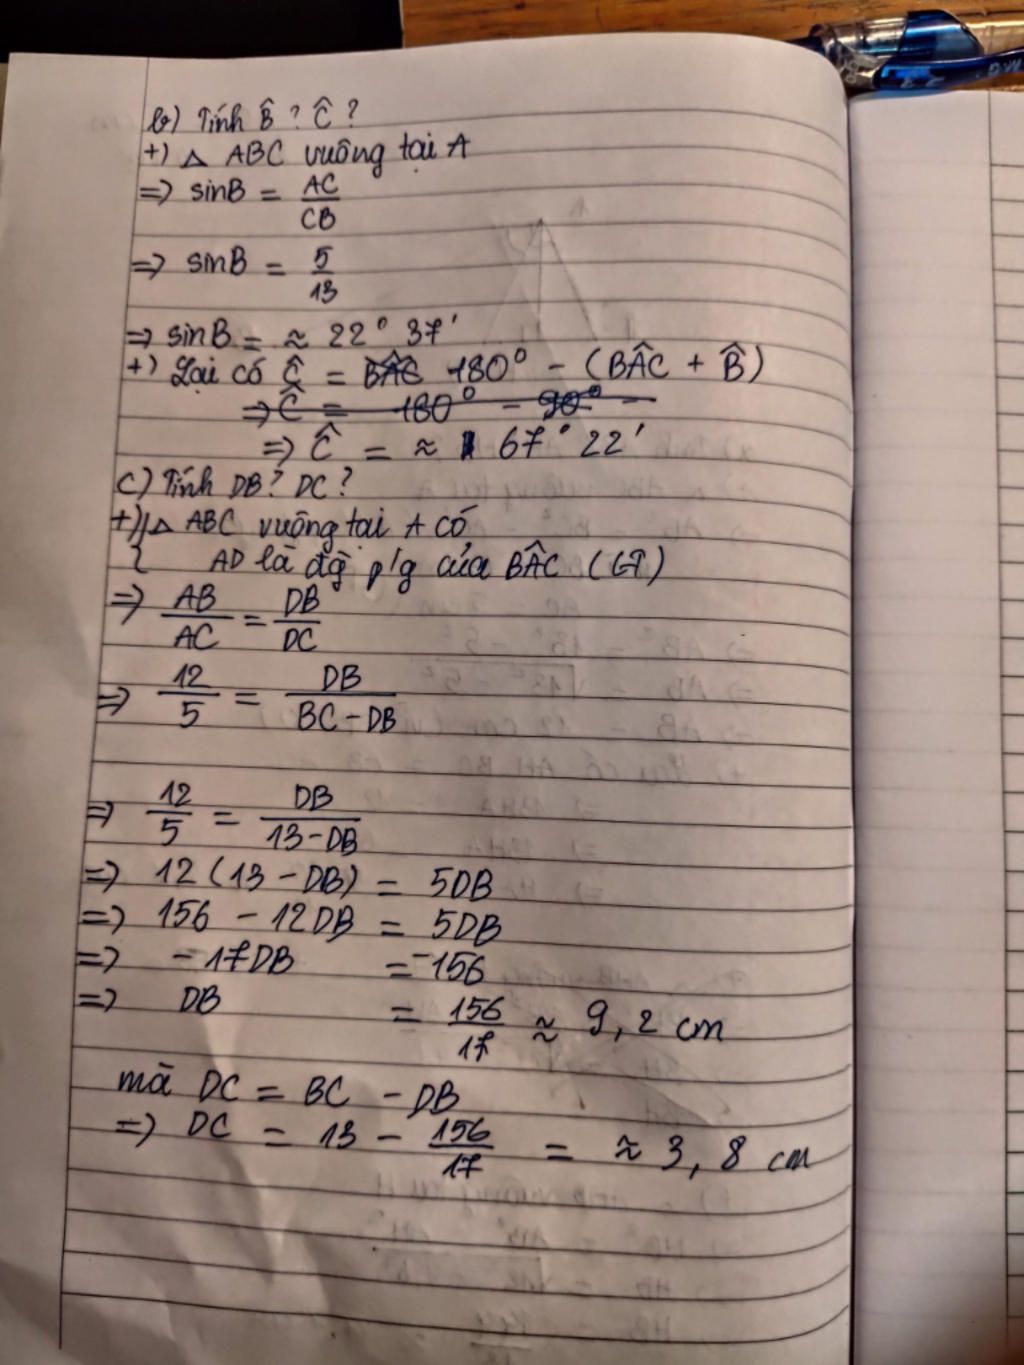 b) Tính B̂ ? Ĉ ?
+) △ ABC vuông tại A
=> sinB = AC/CB
=> sinB = 5/13
=> sinB = ≈ 22° 37'
+) Lại có Ĉ = BÂC 180° - (BÂC + B̂)
=> Ĉ = 180° - 90° -
=> Ĉ = ≈ 67° 22'
c) Tính DB? DC?
+) △ ABC vuông tại A có
{ AD là đg̀ p/g của BÂC (GT)
=> AB/AC = DB/DC
=> 12/5 = DB/BC-DB
=> 12/5 = DB/13-DB
=> 12(13 - DB) = 5DB
=> 156 - 12DB = 5DB
=> -17DB = -156
=> DB = 156/17 ≈ 9,2 cm
mà DC = BC - DB
=> DC = 13 - 156/17 = ≈ 3,8 cm